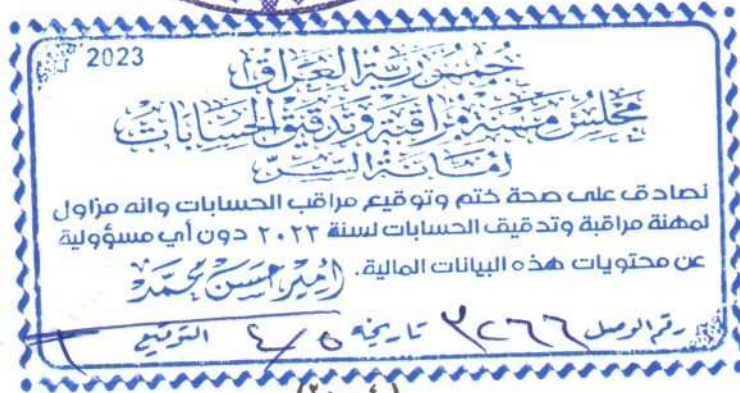 2023
جمهورية العراق
مجلس مهنة مراقبة وتدقيق الحسابات
امانة السر
نصادق على صحة ختم وتوقيع مراقب الحسابات وانه مزاول
لمهنة مراقبة وتدقيق الحسابات لسنة ٢٠٢٣ دون أي مسؤولية
عن محتويات هذه البيانات المالية.
امير حسن محمد
رقم الوصل ٣٢٦٦ تاريخه ٤/٥ التوقيع